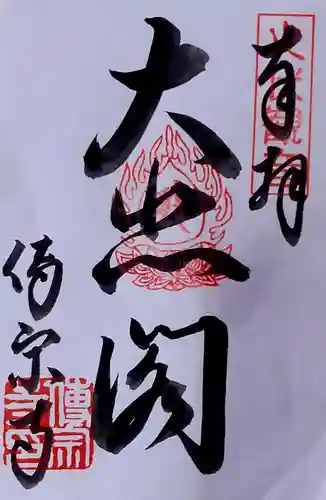 奉拝
大悲閣
傳宗寺
傳宗
寺印